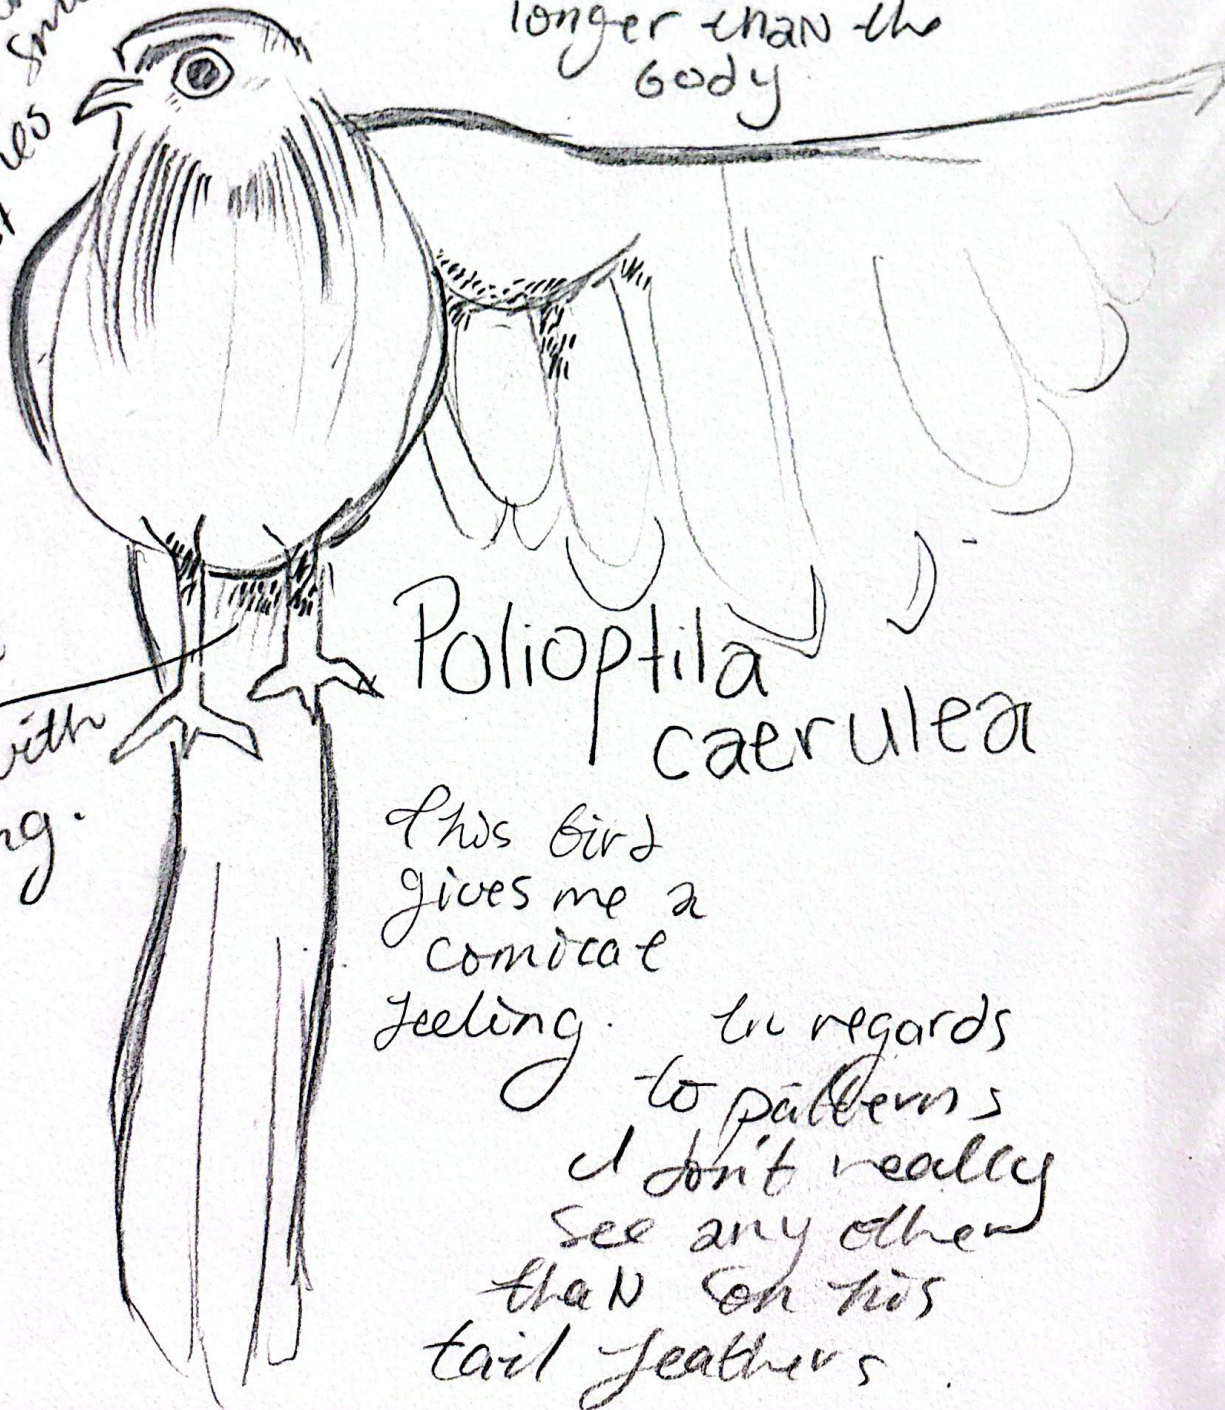 longer than the
body
Polioptila
caerulea
this bird
gives me a
comical
feeling. In regards
to patterns
I don't really
see any other
than on his
tail feathers.
with